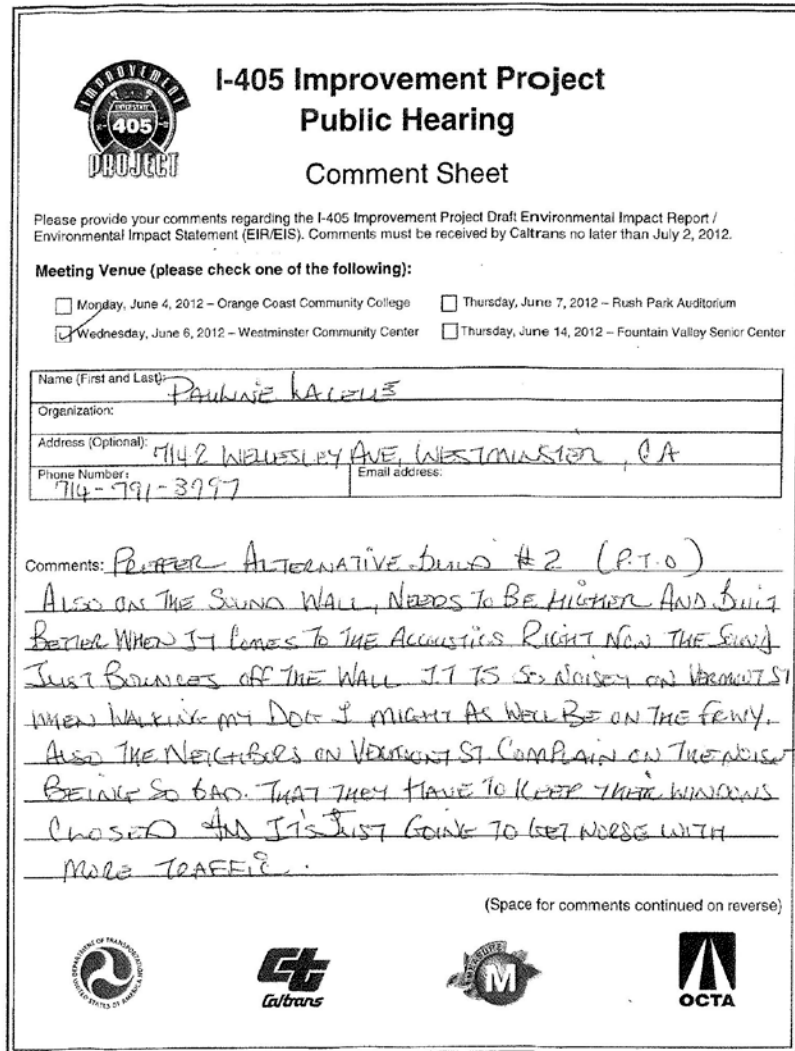 IMPROVEMENT
INTERSTATE
405
PROJECT
I-405 Improvement Project
Public Hearing
Comment Sheet
Please provide your comments regarding the I-405 Improvement Project Draft Environmental Impact Report /
Environmental Impact Statement (EIR/EIS). Comments must be received by Caltrans no later than July 2, 2012.
Meeting Venue (please check one of the following):
Monday, June 4, 2012 – Orange Coast Community College Thursday, June 7, 2012 – Rush Park Auditorium
Wednesday, June 6, 2012 – Westminster Community Center Thursday, June 14, 2012 – Fountain Valley Senior Center
Name (First and Last): PAULINE
Organization:
Address (Optional): 7142 WELLESLEY AVE, WESTMINSTER, CA
Phone Number: Email address:
714-791-3797
Comments: PREFFER ALTERNATIVE BUILD #2 (P.T.O)
ALSO ON THE SOUND WALL, NEEDS TO BE HIGHER AND BUILT
BETTER WHEN IT COMES TO THE ACCOUSTICS RIGHT NOW THE SOUND
JUST BOUNCES OFF THE WALL IT IS SO NOISEY ON VERMONT ST
WHEN WALKING MY DOG I MIGHT AS WELL BE ON THE FRWY.
ALSO THE NEIGHBORS ON VERMONT ST COMPLAIN ON THE NOISE
BEING SO BAD. THAT THEY HAVE TO KEEP THEIR WINDOWS
CLOSED AND IT'S JUST GOING TO GET WORSE WITH
MORE TRAFFIC.
(Space for comments continued on reverse)
DEPARTMENT OF TRANSPORTATION
UNITED STATES OF AMERICA
Caltrans
MEASURE
M
OCTA